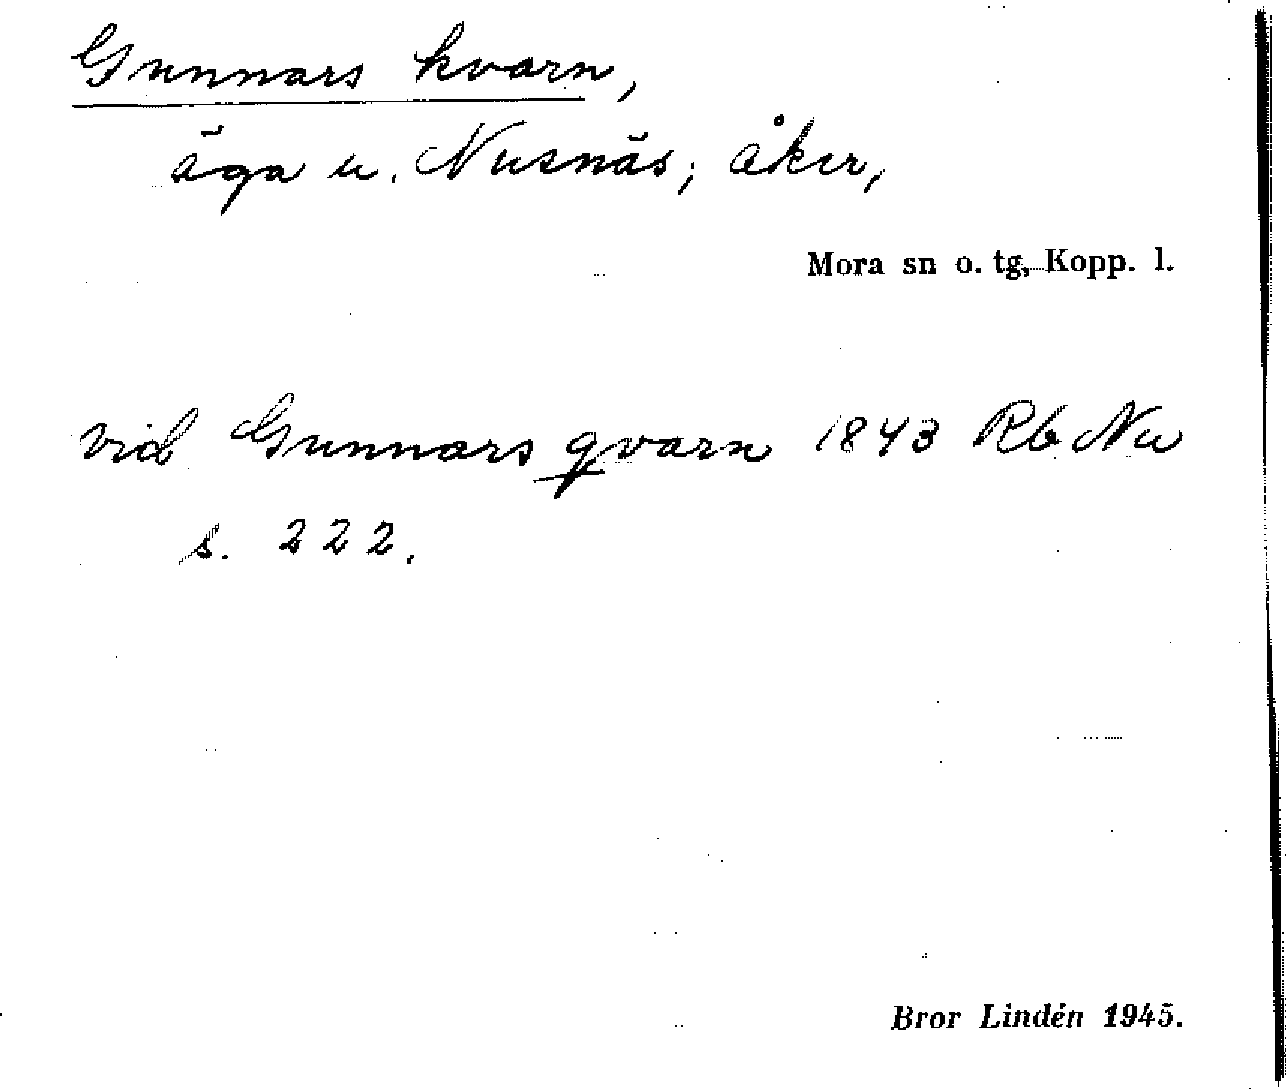 Gunnars kvarn,
äga u. Nusnäs; åker,
Mora sn o. tg, Kopp. l.
vid Gunnars qvarn 1843 Rb Nu
s. 222.
Bror Lindén 1945.